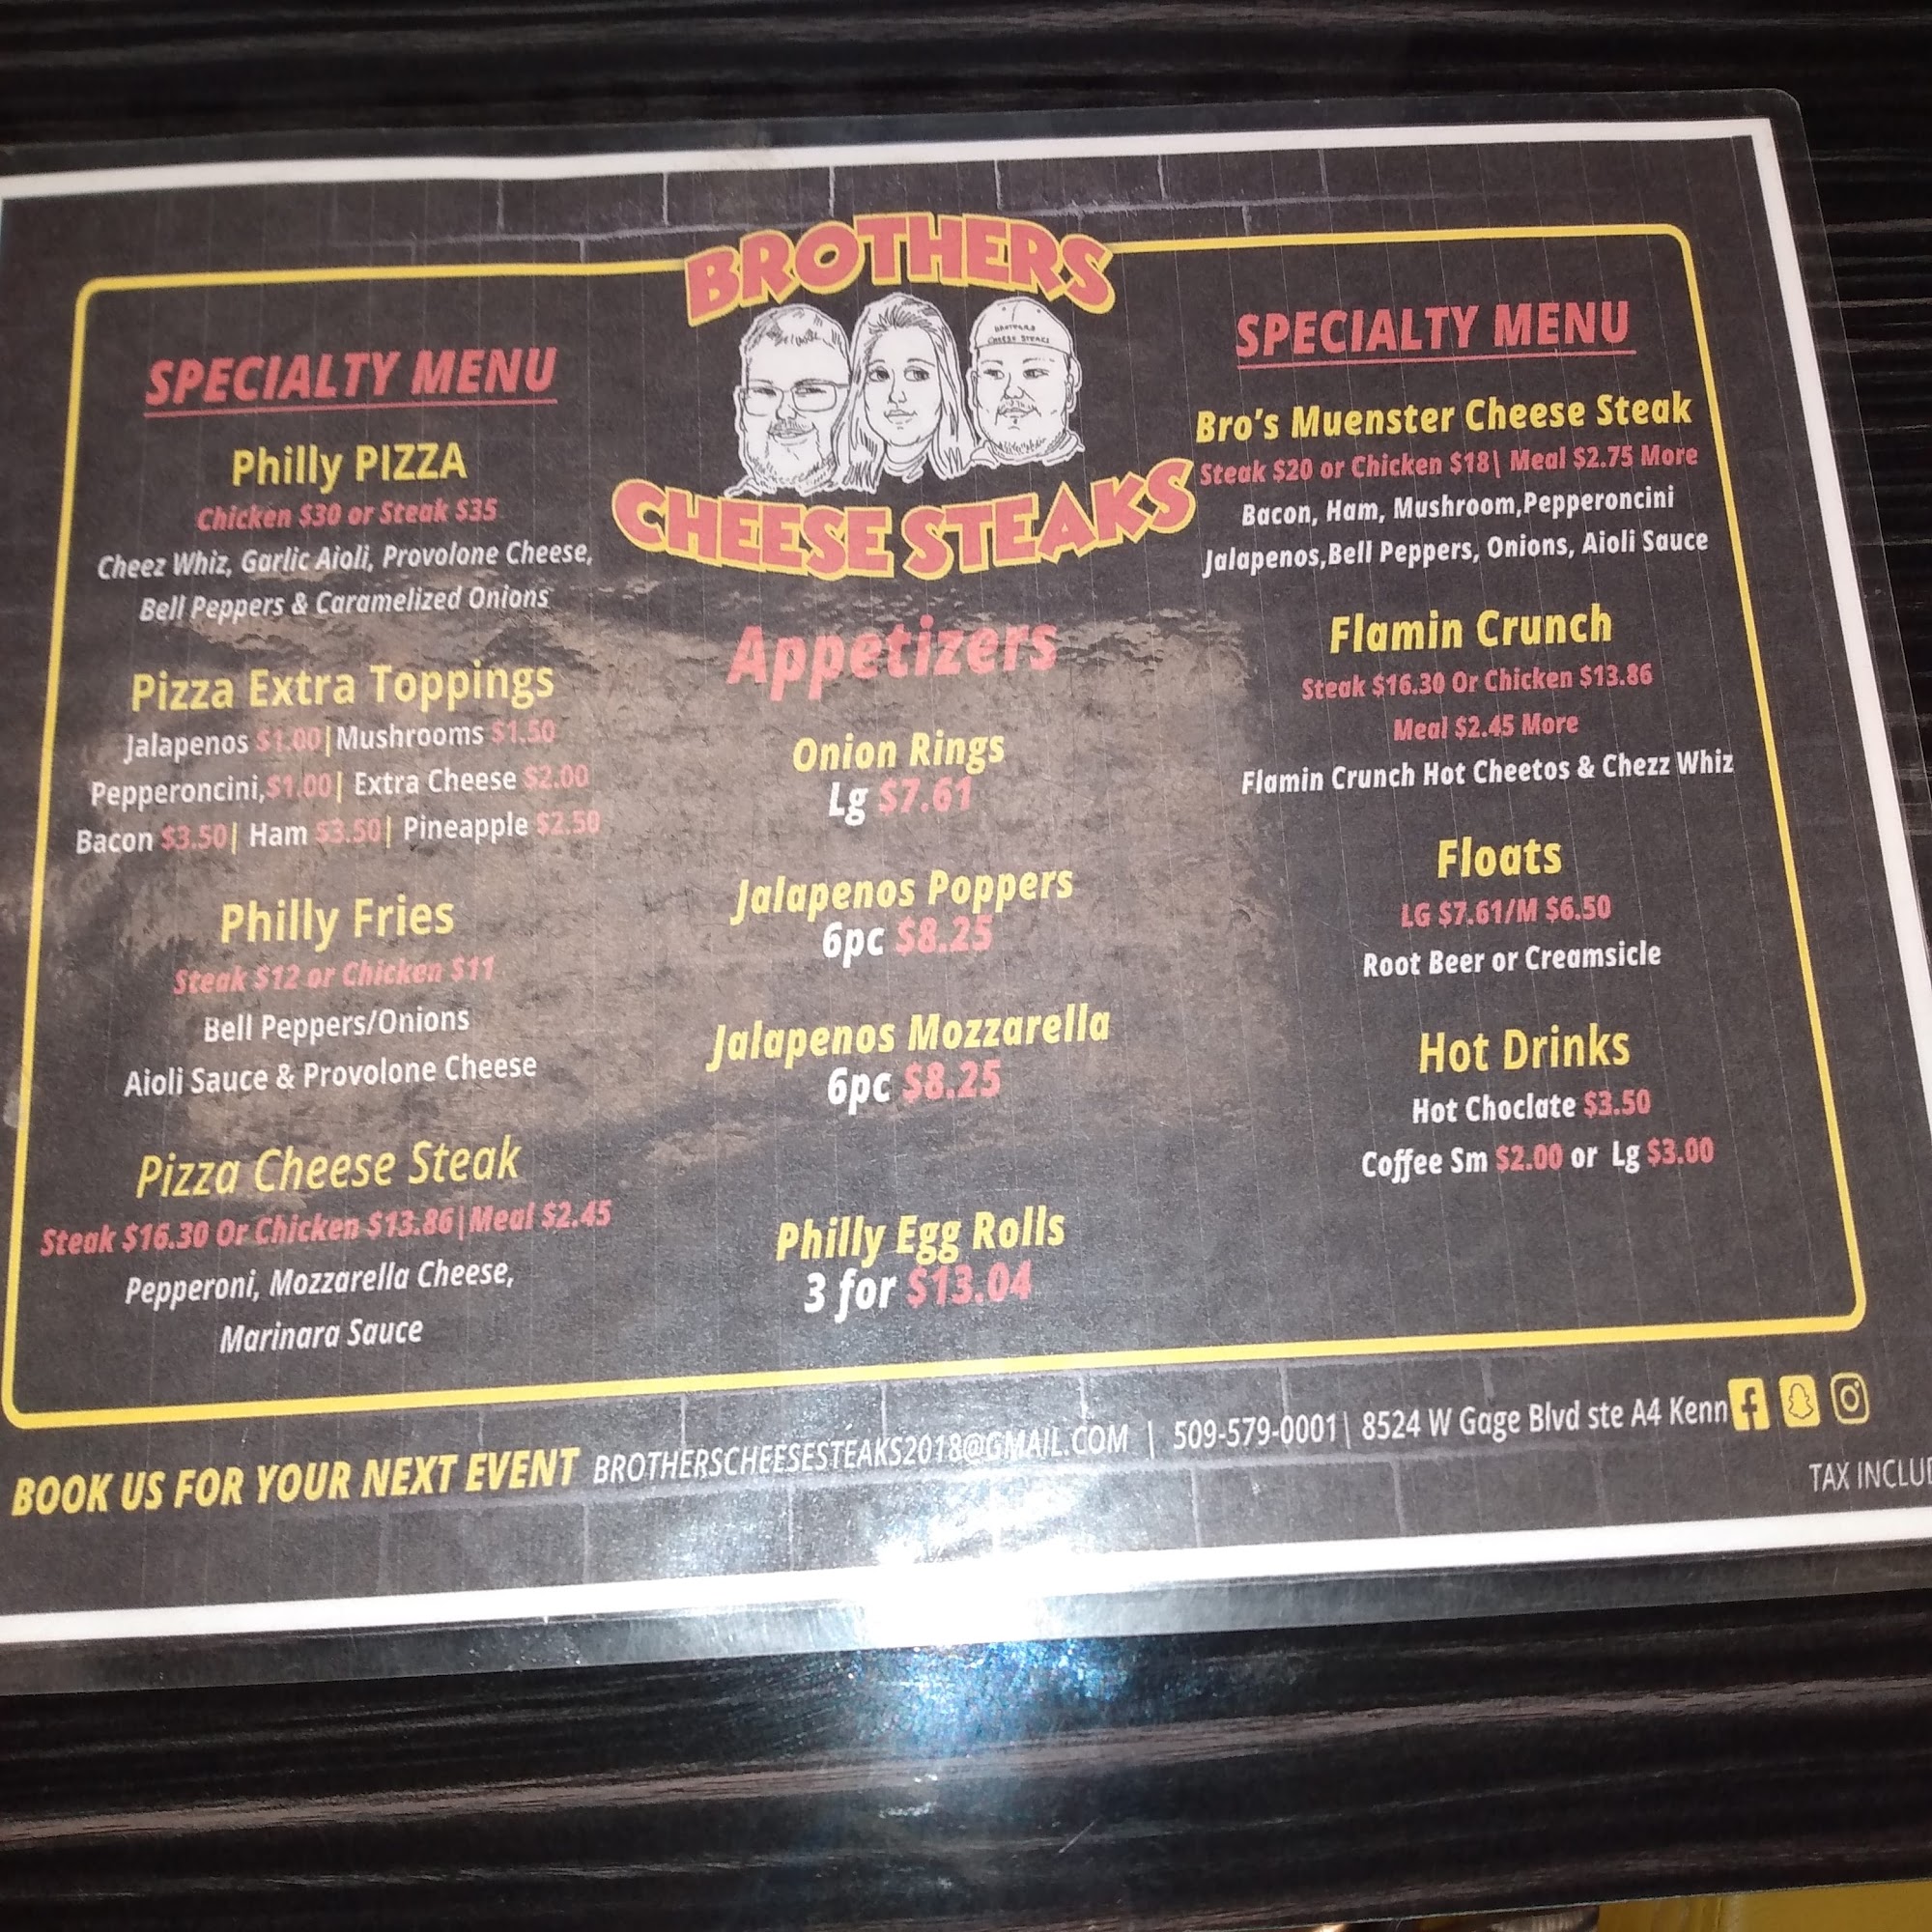 BROTHERS
BROTHERS
CHEESE STEAKS
CHEESE STEAKS
SPECIALTY MENU
Philly PIZZA
Chicken $30 or Steak $35
Cheez Whiz, Garlic Aioli, Provolone Cheese,
Bell Peppers & Caramelized Onions
Pizza Extra Toppings
Jalapenos $1.00|Mushrooms $1.50
Pepperoncini,$1.00| Extra Cheese $2.00
Bacon $3.50| Ham $3.50| Pineapple $2.50
Philly Fries
Steak $12 or Chicken $11
Bell Peppers/Onions
Aioli Sauce & Provolone Cheese
Pizza Cheese Steak
Steak $16.30 Or Chicken $13.86|Meal $2.45
Pepperoni, Mozzarella Cheese,
Marinara Sauce
Appetizers
Onion Rings
Lg $7.61
Jalapenos Poppers
6pc $8.25
Jalapenos Mozzarella
6pc $8.25
Philly Egg Rolls
3 for $13.04
SPECIALTY MENU
Bro's Muenster Cheese Steak
Steak $20 or Chicken $18| Meal $2.75 More
Bacon, Ham, Mushroom,Pepperoncini
Jalapenos,Bell Peppers, Onions, Aioli Sauce
Flamin Crunch
Steak $16.30 Or Chicken $13.86
Meal $2.45 More
Flamin Crunch Hot Cheetos & Chezz Whiz
Floats
LG $7.61/M $6.50
Root Beer or Creamsicle
Hot Drinks
Hot Choclate $3.50
Coffee Sm $2.00 or Lg $3.00
BOOK US FOR YOUR NEXT EVENT BROTHERSCHEESESTEAKS2018@GMAIL.COM | 509-579-0001| 8524 W Gage Blvd ste A4 Kenn
TAX INCLU